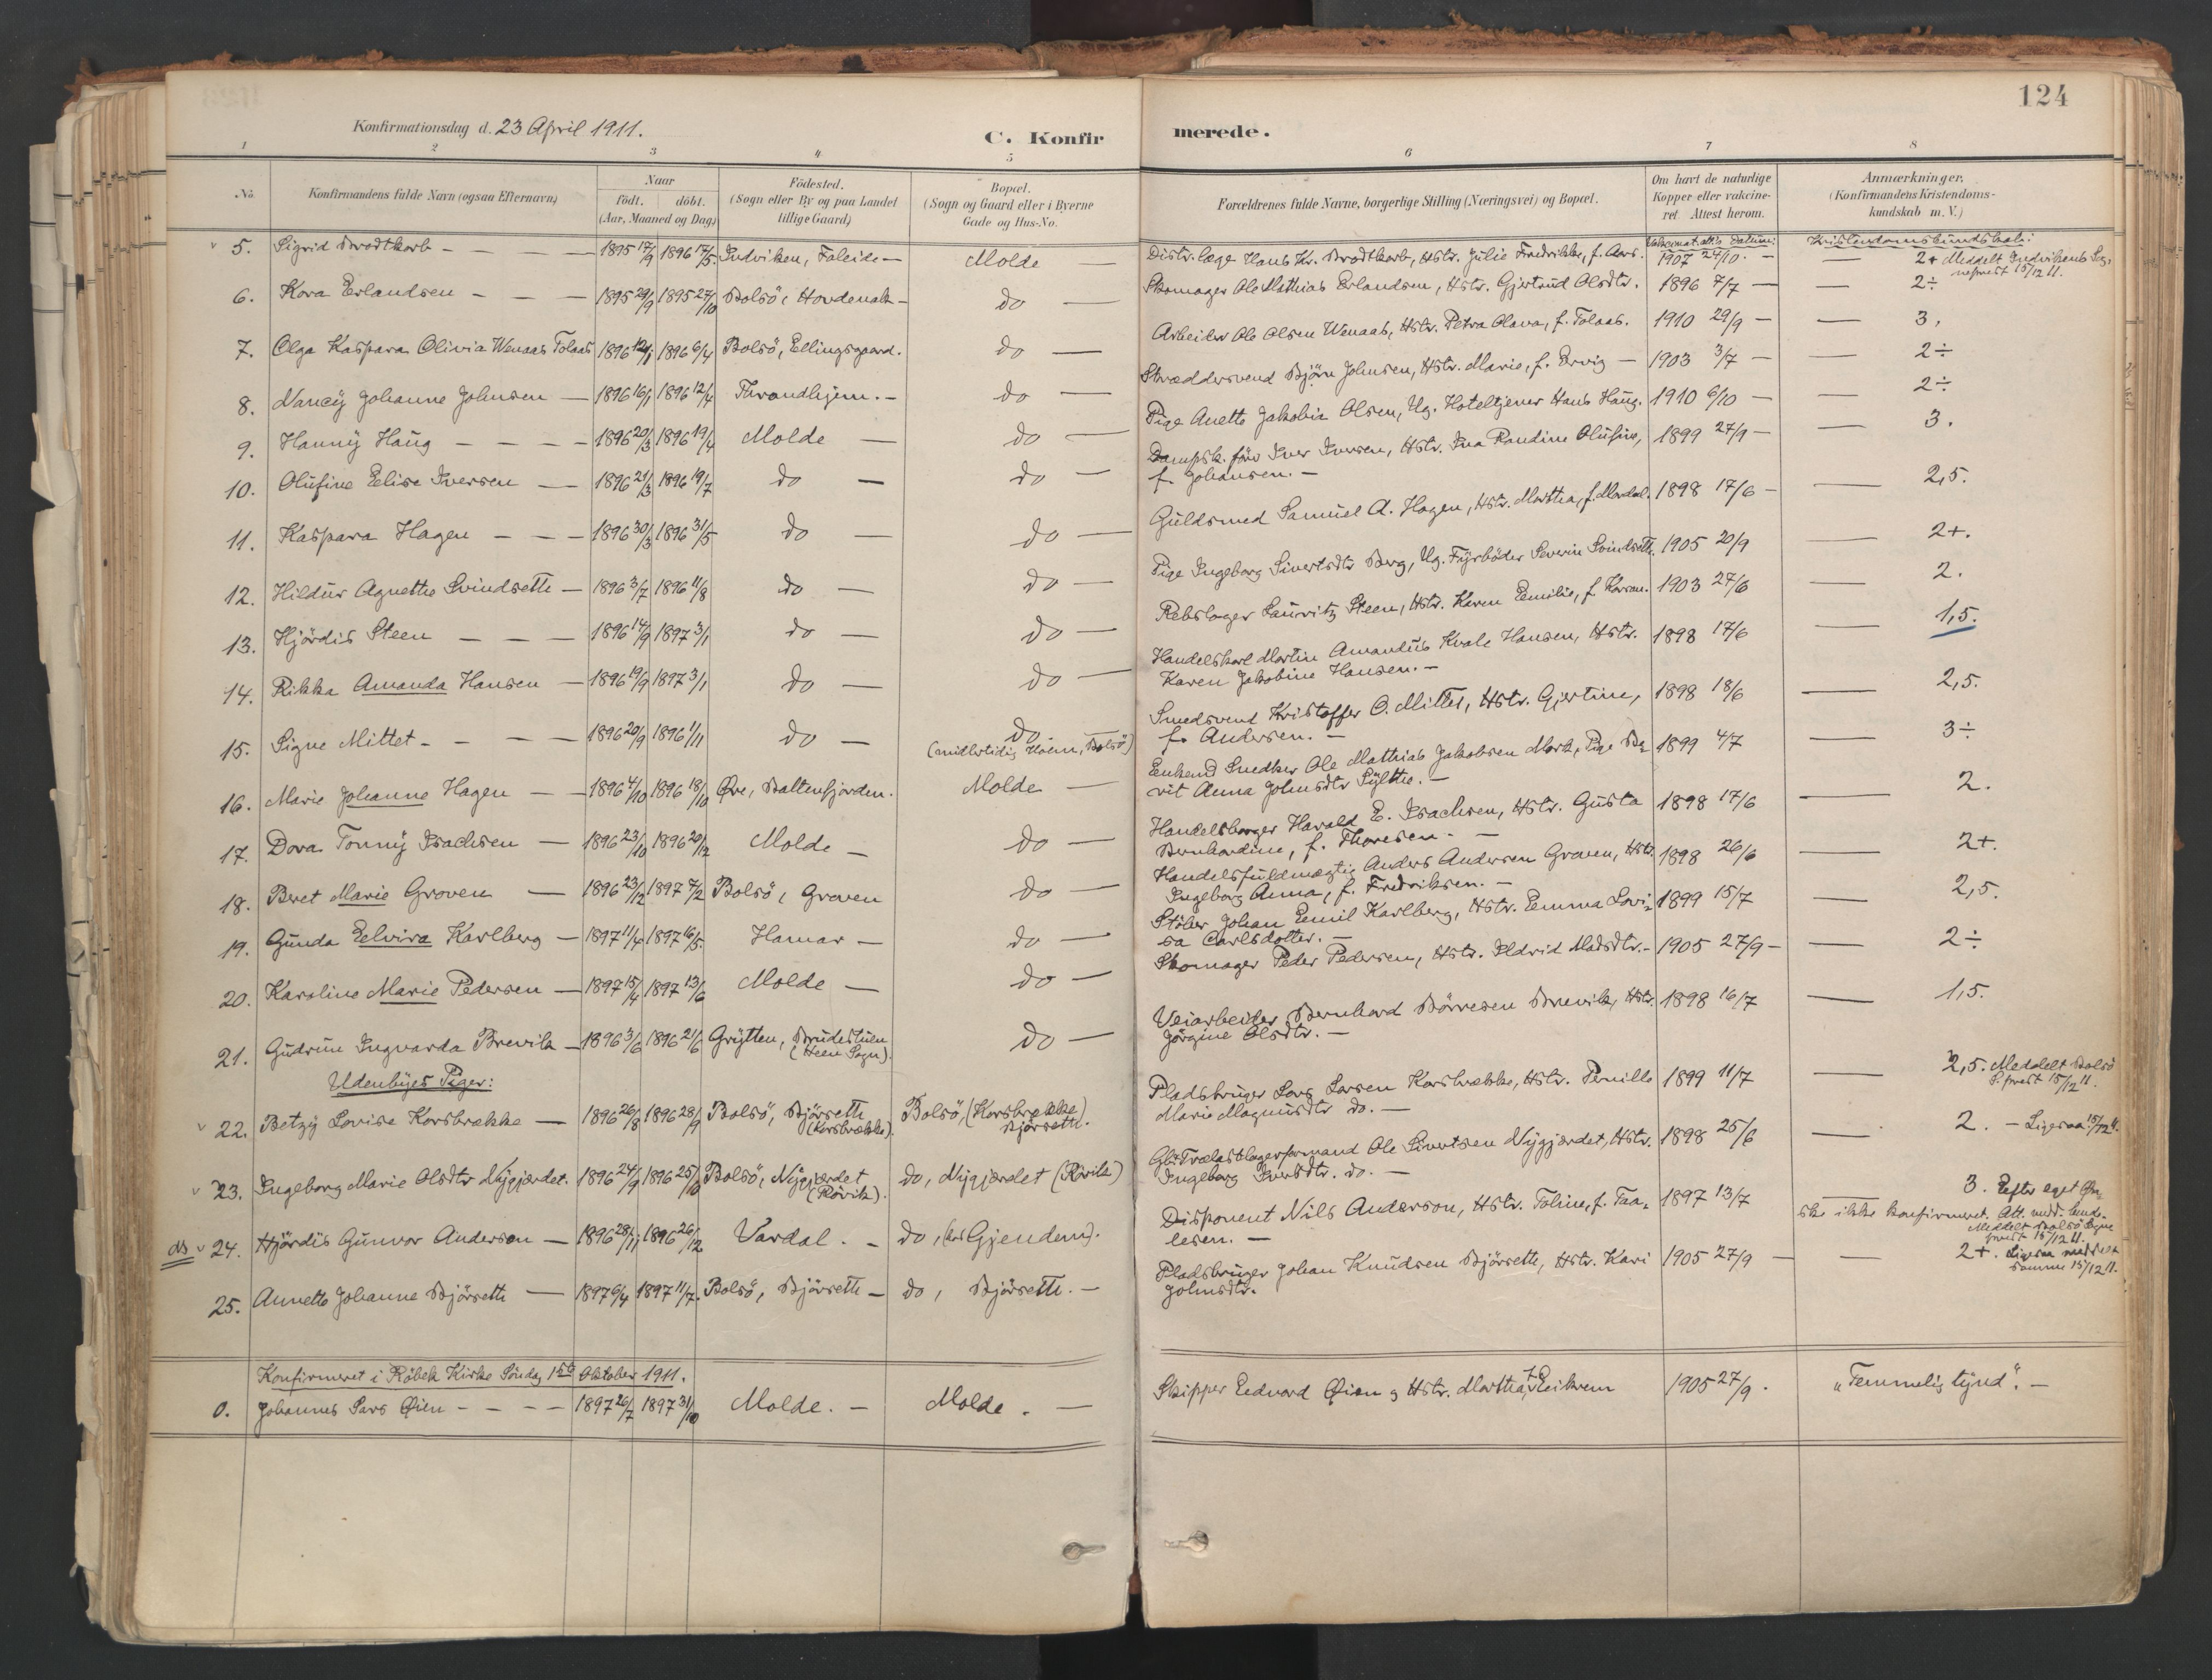 124
Konfirmationsdag d. 23 April 1911.
C. Konfirmerede.
1 2 3 4 5 6 7 8
No.
Konfirmandens fulde Navn (ogsaa Efternavn)
Naar
født. døbt.
(Aar, Maaned og Dag)
Fødested.
(Sogn eller By og paa Landet
tillige Gaard)
Bopæl.
(Sogn og Gaard eller i Byerne
Gade og Hus-No.
Forældrenes fulde Navne, borgerlige Stilling (Næringsvei) og Bopæl.
Om havt de naturlige
Kopper eller vakcine-
ret Attest herom.
Anmærkninger.
(Konfirmandens Kristendoms-
kundskab m. V.)
Vakcinat.att's Datum:
Kristendomskundskab:
5. Sigrid Brodtkorb — 1895 17/9 1896 17/5. Indviken, Faleide — Molde — Distr.læge Hans Kr. Brodtkorb, Hstr. Julie Fredrikke, f. Aars. 1907 24/10. — 2+ Meddelt Indvikens Sog-
neprest 15/12 11.
6. Kora Erlandsen — 1895 29/9 1895 27/10 Bolsö, Hovdenak — do — Skomager Ole Mathias Erlandsen, Hstr. Gjertrud Olsdtr. 1896 7/7 — 2÷
7. Olga Kaspara Olivia Wenaas Tolaas 1896 12/1 1896 6/4 Bolsö, Ellingsgaard. do — Arbeider Ole Olsen Wenaas, Hstr. Petra Olava, f. Tolaas. 1910 29/9 — 3.
8. Nancy Johanne Johnsen — 1896 16/1 1896 12/4 Throndhjem. — do — Skræddersvend Bjørn Johnsen, Hstr. Marie, f. Ervig — 1903 3/7 — 2÷
9. Hanny Haug — 1896 20/3 1896 19/4 Molde — do — Pige Anette Jakobia Olsen, Ug. Hoteltjener Hans Haug. 1910 6/10 — 2÷
10. Olufine Elise Iversen — 1896 21/3 1896 19/7 do — do — Dampsk.förer Iver Iversen, Hstr. Ina Randine Olufine,
f. Johansen. — 1899 27/9 — 3.
11. Kaspara Hagen — 1896 30/3 1896 31/5 do — do — Guldsmed Samuel A. Hagen, Hstr. Martha, f. Mordal. 1898 17/6 — 2,5.
12. Hildur Agnethe Svindseth — 1896 3/7 1896 11/8 do — do — Pige Ingeborg Sivertsdtr Berg, Ug. Fyrböder Severin Svindseth. 1905 20/9 — 2+.
13. Hjördis Steen — 1896 14/9 1897 3/1 do — do — Rebslager Lauritz Steen, Hstr. Karen Emilie, f. 1903 27/6 — 2.
14. Rikka Amanda Hansen — 1896 19/9 1897 3/1 do — do — Handelskarl Martin Amandus Kvale Hansen, Hstr.
Karen Jakobine Hansen. — 1898 17/6 — 1,5.
15. Signe Mittet — 1896 20/9 1896 1/11 do — do —
(midlertidig Holm, Bolsö)
Smedsvend Kristoffer O. Mittet, Hstr. Gjertine,
f. Andersen. — 1898 18/6 — 2,5.
16. Marie Johanne Hagen — 1896 4/10 1896 18/10 Øre, Battenfjorden. Molde — Enkemd Snedker Ole Mathias Jakobsen Mork, Pige Be-
rit Anna Johnsdtr Sylthe. — 1899 4/7 — 3÷
17. Dora Tonny Isachsen — 1896 23/10 1896 20/12 Molde — do — Handelsborger Harald E. Isachsen, Hstr. Gusta
Bernhardine, f. Thoresen. — 1898 17/6 — 2.
18. Beret Marie Groven — 1896 23/12 1897 7/2 Bolsö, Groven do — Handelsfuldmægtig Anders Andersen Groven, Hstr.
Ingeborg Anna, f. Fredriksen. — 1898 26/6 — 2+.
19. Gunda Eelvira Karlberg — 1897 11/4 1897 16/5. Hamar — do — Støber Johan Eemil Karlberg, Hstr. Eemma Lovi-
sa Carlsdotter. — 1899 15/7 — 2,5.
20. Karoline Marie Pedersen — 1897 15/4 1897 13/6 Molde — do — Skomager Peder Pedersen, Hstr. Eldrid Madsdtr. — 1905 27/9 — 2÷
21. Gudrun Ingvarda Brevik — 1896 3/6 1896 21/6 Grytten, Brudestuen
(Heen Sogn). do — Veiarbeider Bernhard Börresen Brevik, Hstr.
Jörgine Olsdtr. — 1898 16/7 — 1,5.
Udenbyes Piger:
22. Betzy Lovise Korsbrække — 1896 26/8 1896 28/9 Bolsö, Bjørseth
(Korsbrække). Bolsö, (Korsbrække)
Bjørseth. Pladsbruger Lars Larsen Korsbrække, Hstr. Pernille
Marie Magnusdtr do. — 1899 11/7 — 2,5. Meddelt Bolsö
S.prest 15/12 11.
23. Ingeborg Marie Olsdtr Nygjærdet. 1896 24/9 1896 25/10 Bolsö, Nygjærdet
(Rövik). do, Nygjærdet (Rövik) Trælastlagerformand Ole Sivertsen Nygjærdet, Hstr.
Ingeborg Iversdtr. do. — 1898 25/6 — 2. — Ligesaa 15/12 11.
ds 24. Hjördis Gunvor Anderson — 1896 28/11 1896 26/12 Vardal. — do, Gjendem). Disponent Nils Anderson, Hstr. Toline, f. Taa-
lesen. — 1897 13/7 — 3. Eefter eget Øn-
ske ikke konfirmeret. Att. medd.
Meddelt Bolsö Sogne
prest 15/12 11.
25. Annette Johanne Bjørseth — 1897 6/4 1897 11/7. Bolsö, Bjørseth — do, Bjørseth. — Pladsbruger Johan Knudsen Bjørseth, Hstr. Kari
Johnsdtr. 1905 27/9 — 2+. Ligesaa meddelt
samme 15/12 11.
Konfirmeret i Röbek Kirke Söndag 1ste Oktober 1911.
0. Johannes Lars Øien — 1897 26/7 1897 31/10 Molde. — Molde. — Skipper Eedvard Øien og Hstr. Martha, f. Eeikrem 1905 27/9. „Temmelig tynd“. —